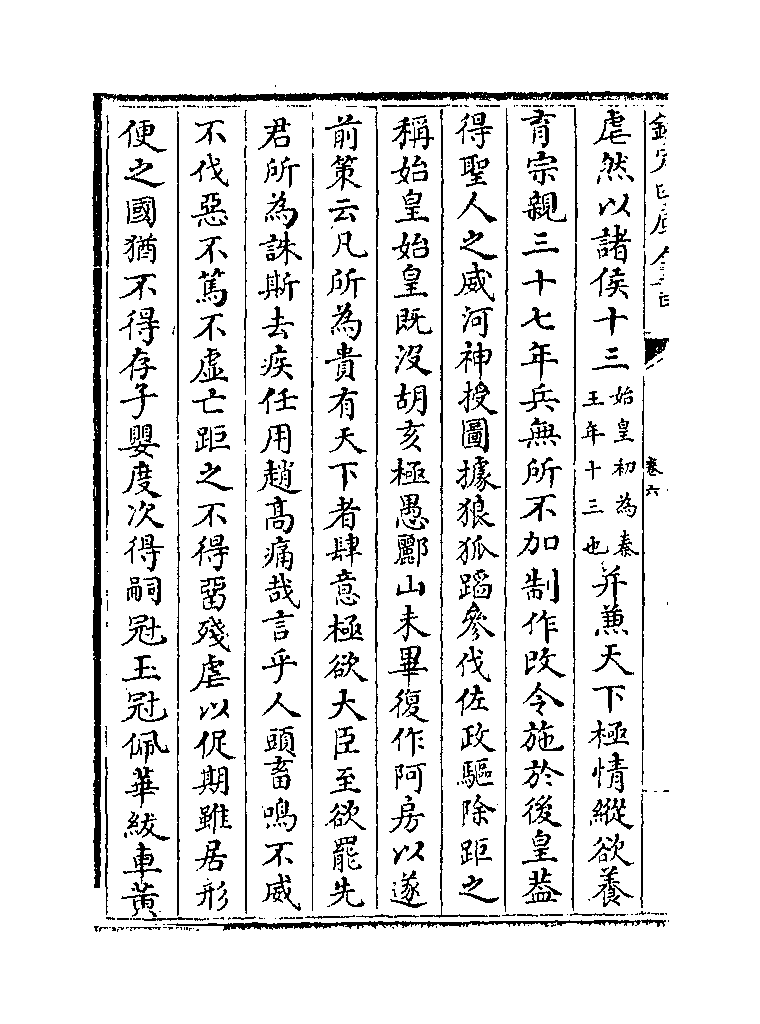 欽定四庫全書
卷六
虐然以諸侯十三始皇初為秦王年十三也并兼天下極情縱欲養
育宗親三十七年兵無所不加制作政令施於後皇蓋
得聖人之威河神授圖據狼狐蹈參伐佐政驅除距之
稱始皇始皇既沒胡亥極愚酈山未畢復作阿房以遂
前策云凡所為貴有天下者肆意極欲大臣至欲罷先
君所為誅斯去疾任用趙高痛哉言乎人頭畜鳴不威
不伐惡不篤不虛亡距之不得留殘虐以促期雖居形
便之國猶不得存子嬰度次得嗣冠玉冠佩華紱車黃